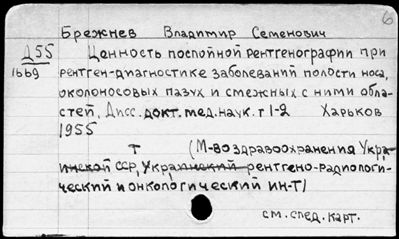 6
Брежнев Владимир Семенович
Д55 Ценность послойной рентгенографии при
1669 рентген-диагностике заболеваний полости носа,
околоносовых пазух и смежных с ними обла-
стей, Дисс. докт. мед. наук. т 1-2 Харьков
1955
т (М-во здравоохранения Укра-
инской ССР, Украинский рентгено-радиологи-
ческий и онкологический ин-т)
см. спец. карт.